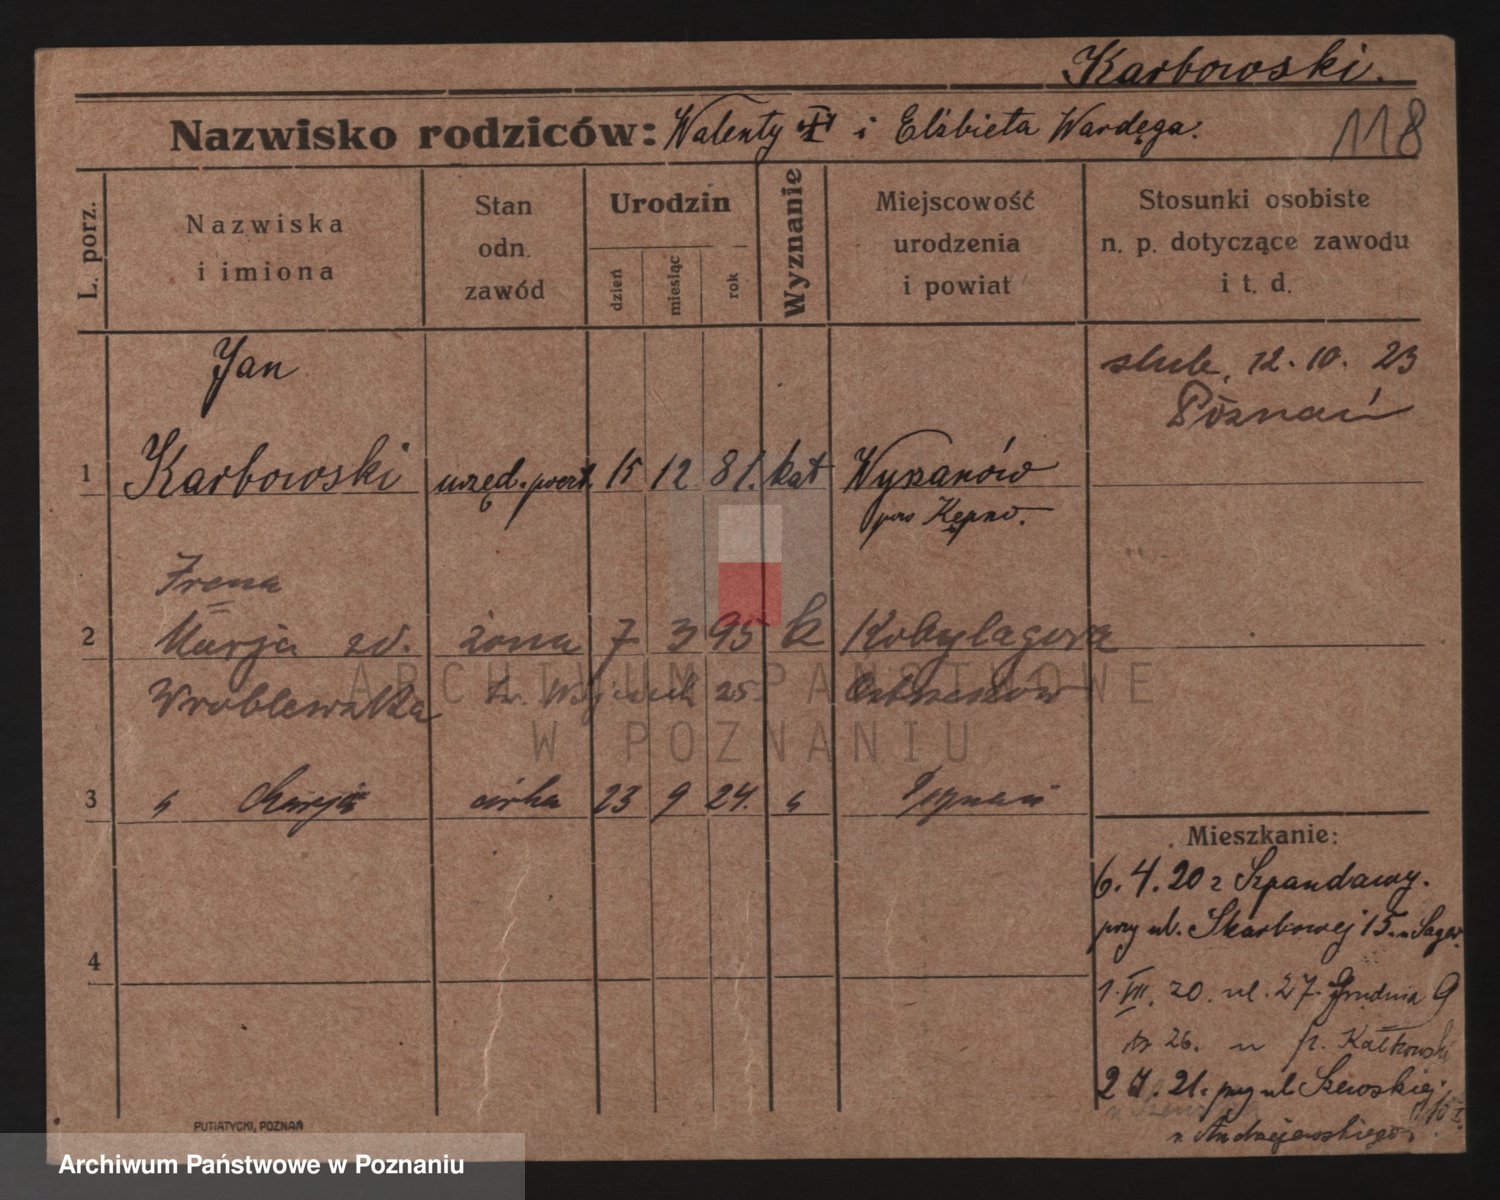 Karbowski.
Nazwisko rodziców: Walenty ✝ i Elżbieta Wardęga.
118
L. porz.
Nazwiska
i imiona
Stan
odn.
zawód
Urodzin
dzień
miesiąc
rok
Wyznanie
Miejscowość
urodzenia
i powiat
Stosunki osobiste
n. p. dotyczące zawodu
i t. d.
Jan
ślub. 12. 10. 23
Poznań
1 Karbowski urzęd. poczt. 15 12 81. kat Wyszanów
pow Kępno.
Irena
2 Marja zd. żona 7 3 95 k Kobylagora
Wroblewska 25. Ostrzeszów
3 " Marja córka 23 9 24. " Poznań
4
Mieszkanie:
6. 4. 20 z Szpandawy.
przy ul. Skarbowej 15. u Sager.
1. VII. 20. ul. 27. Grudnia 9
26. u p. Kałkowski
2 7. 21. przy ul Szewskiej
u Andrzejewskiego
PUTIATYCKI, POZNAŃ
ARCHIWUM PAŃSTWOWE
W POZNANIU
Archiwum Państwowe w Poznaniu